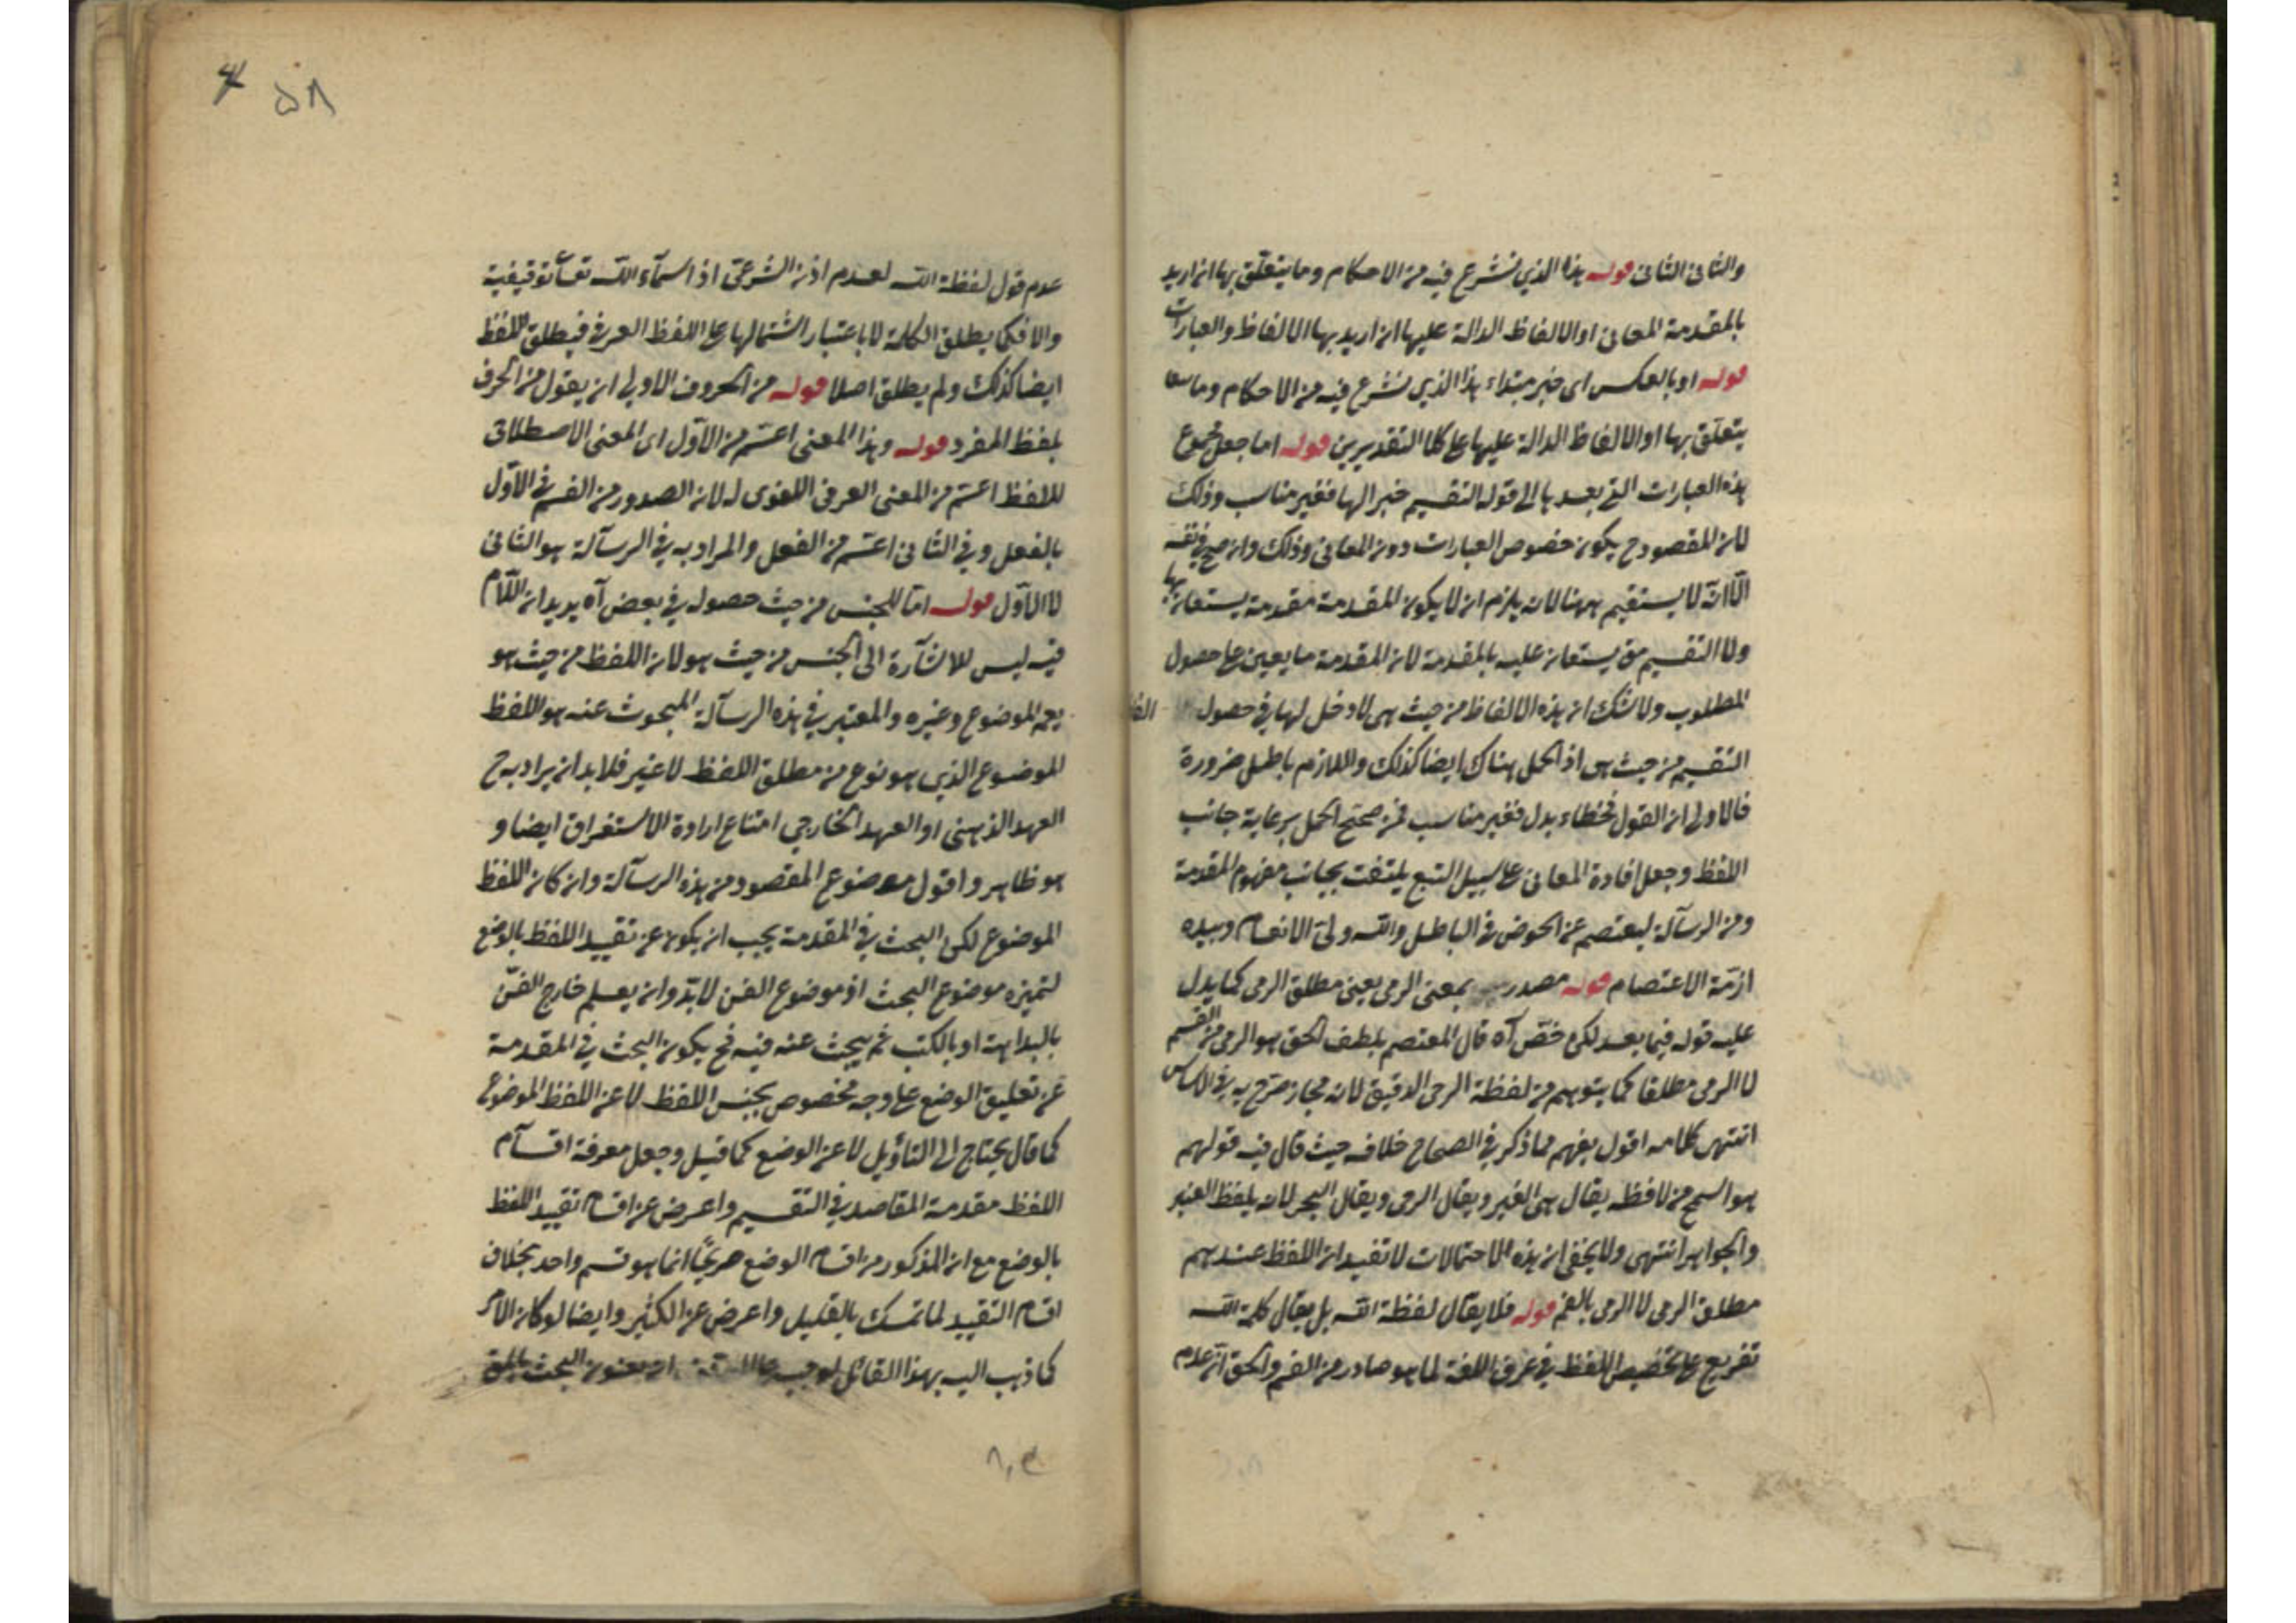 والثانى الثانى قوله هذا الذي نشرع فيه من الاحكام وما يتعلق بها ان اريد
بالمقدمة المعانى او الالفاظ الدالة عليها ان اريد بها الالفاظ والعبارات
قوله او بالعكس اى خبر مبتداء هذا الذي نشرع فيه من الاحكام وما
يتعلق بها او الالفاظ الدالة عليها على كلا التقديرين قوله اما جعل مجموع
هذه العبارات التى بعدها الى قوله التقسيم خبرا لها فغير مناسب وذلك
لان المقصود ح يكون خصوص العبارات دون المعانى وذلك وان صح فى نفسه
الا انه لا يستقيم ههنا لانه يلزم ان لا يكون المقدمة مقدمة يستعان بها
ولا التقسيم مق يستعان عليه بالمقدمة لان المقدمة ما يعين على حصول
المطلوب ولا شك ان هذه الالفاظ من حيث هى لا دخل لها فى حصول
التقسيم من حيث هى اذ الحمل هناك ايضا كذلك واللازم باطل ضرورة
فالاولى ان القول فخطاء بدل فغير مناسب فمن صحح الحمل برعاية جانب
اللفظ وجعل افادة المعانى على سبيل التبع يلتفت بجانب مفهوم المقدمة
ومن الرسآلة ليعتصم عن الخوض فى الباطل والله ولى الانعام وبيده
ازمّة الاعتصام قوله مصدر بمعنى الرمى يعنى مطلق الرمى كما يدل
عليه قوله فيما بعد لكن خصّ آه قال المعتصم بلطف الحق هو الرمى من الفم
لا الرمى مطلقا كما يتوهم من لفظة الرحى الدقيق لانه مجاز صرّح به فى الاساس
انتهى كلامه اقول يفهم مما ذكر فى الصحاح خلافه حيث قال فيه قولهم
هو اسمح من لافظه يقال هى الغير ويقال الرحى ويقال البحر لانه يلفظ العنبر
والجواهر انتهى ولا يخفى ان هذه الاحتمالات لا تفيد ان اللفظ عندهم
مطلق الرمى لا الرمى بالفم قوله فلا يقال لفظة الله بل يقال كلمة الله
تفريع على تخصيص اللفظ فى عرف اللغة لما هو صادر من الفم والحق انّ عدم
۵۸
عدم قول لفظة الله لعدم اذن الشرعىّ اذ اسمآء الله تعـآ توقيفية
والا فكما يطلق الكلمة لا باعتبار اشتمالها على اللفظ العرفى فيطلق اللفظ
ايضا كذلك ولم يطلق اصلا قوله من الحروف الاولى ان يقول من الحرف
بلفظ المفرد قوله وهذا المعنى اعمّ من الاوّل اى المعنى الاصطلاحى
للفظ اعمّ من المعنى العرفى اللغوى له لان الصدور من الفم فى الاوّل
بالفعل وفى الثانى اعمّ من الفعل والمراد به فى الرسآلة هو الثانى
لا الاوّل قوله امّا للجنس من حيث حصوله فى بعض آه يريد ان اللآم
فيه ليس للاشآرة الى الجنس من حيث هو لان اللفظ من حيث هو
يعم الموضوع وغيره والمعتبر فى هذه الرسآلة المبحوث عنه هو اللفظ
الموضوع الذي هو نوع من مطلق اللفظ لا غير فلا بد ان يراد به ح
العهد الذهنى او العهد الخارجى امتناع ارادة الاستغراق ايضا و
هو ظاهر واقول موضوع المقصود من هذه الرسآلة وان كان اللفظ
الموضوع لكن البحث فى المقدمة يجب ان يكون عن تقييد اللفظ بالوضع
لتميزه موضوع البحث اذ موضوع الفن لا بدّ وان يعلم خارج الفنّ
بالبداهة او بالكتب ثم يبحث عنه فيه فح يكون البحث فى المقدمة
عن تعليق الوضع على وجه مخصوص بجنس اللفظ لا عن اللفظ الموضوع
كما قال يحتاج الى التأويل لا عن الوضع كما قيل وجعل معرفة اقسآم
اللفظ مقدمة المقاصد فى التقسيم واعرض عن اقسام تقييد اللفظ
بالوضع مع ان المذكور من اقسام الوضع صريحًا انما هو قسم واحد بخلاف
اقسام التقييد لما تمسك بالقليل واعرض عن الكثير وايضا لو كان الامر
كما ذهب اليه بهذا القائل لوجب على ان يعنون البحث